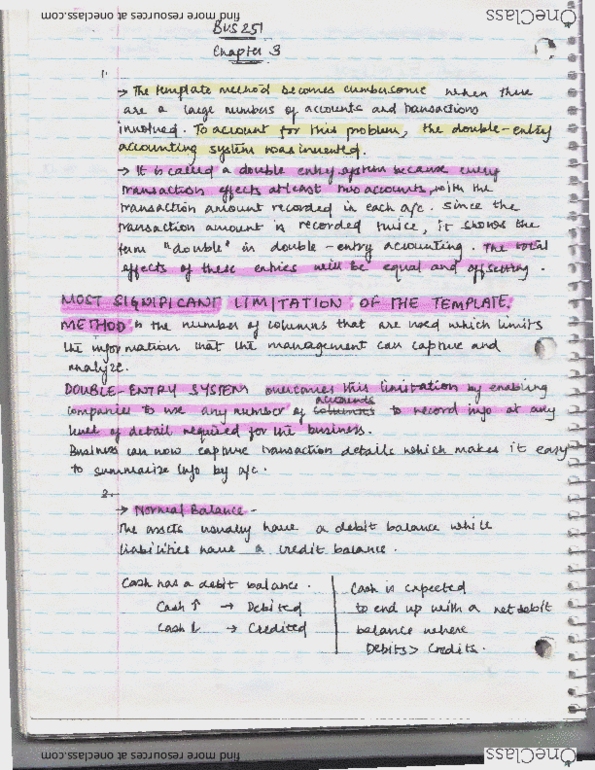 find more resources at oneclass.com
OneClass
BUS 251
Chapter 3
1.
→ The template method becomes cumbersome when there
are a large numbers of accounts and transactions
involved. To account for this problem, the double-entry
accounting system was invented.
→ It is called a double entry system because every
transaction effects atleast two accounts, with the
transaction amount recorded in each a/c. Since the
transaction amount is recorded twice, it shows the
term "double" in double-entry accounting. The total
effects of these entries will be equal and offsetting.
MOST SIGNIFICANT LIMITATION OF THE TEMPLATE
METHOD is the number of columns that are used which limits
the information that the management can capture and
analyze.
DOUBLE-ENTRY SYSTEM overcomes this limitation by enabling
accounts
companies to use any number of columns to record info at any
level of detail required for the business.
Business can now capture transaction details which makes it easy
to summarize info by a/c.
2.
→ Normal Balance -
The assets usually have a debit balance while
liabilities have a credit balance.
Cash has a debit balance.
Cash ↑ → Debited
Cash ↓ → Credited
Cash is expected
to end up with a net debit
balance where
Debits > Credits.
find more resources at oneclass.com
OneClass